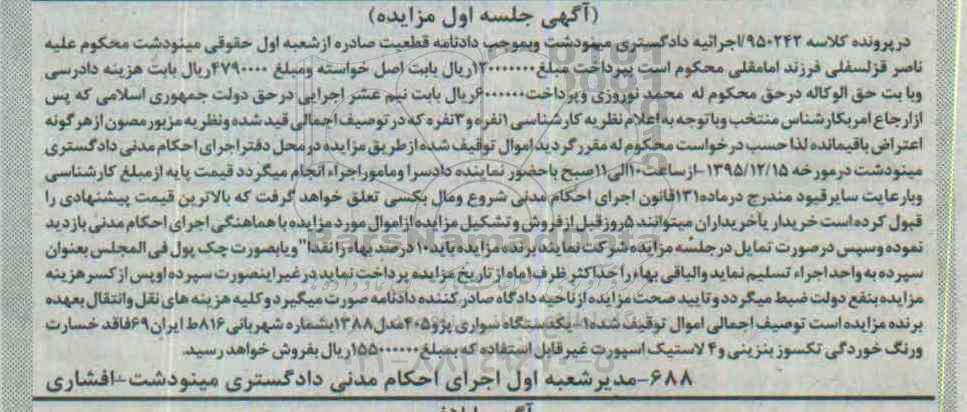 (آگهی جلسه اول مزایده)
درپرونده کلاسه ۹۵۰۲۴۲/اجرائیه دادگستری مینودشت وبموجب دادنامه قطعیت صادره ازشعبه اول حقوقی مینودشت محکوم علیه
ناصر قزلسفلی فرزند امامقلی محکوم است بپرداخت مبلغ ۱۲۰۰۰۰۰۰۰ریال بابت اصل خواسته ومبلغ ۴۷۹۰۰۰۰ریال بابت هزینه دادرسی
وبا بت حق الوکاله درحق محکوم له محمد نوروزی وپرداخت ۶۰۰۰۰۰۰ریال بابت نیم عشر اجرایی درحق دولت جمهوری اسلامی که پس
ازارجاع امربکارشناس منتخب وباتوجه به اعلام نظریه کارشناسی ۱نفره و۳نفره که درتوصیف اجمالی قید شده ونظریه مزبور مصون ازهرگونه
اعتراض باقیمانده لذا حسب درخواست محکوم له مقررگردید اموال توقیف شده ازطریق مزایده درمحل دفتراجرای احکام مدنی دادگستری
مینودشت درمورخه ۱۳۹۵/۱۲/۱۵ -ازساعت ۱۰الی۱۱صبح باحضور نماینده دادسرا وماموراجراء انجام میگردد قیمت پایه ازمبلغ کارشناسی
وبارعایت سایرقیود مندرج درماده۱۳۱قانون اجرای احکام مدنی شروع ومال بکسی تعلق خواهد گرفت که بالاترین قیمت پیشنهادی را
قبول کرده است خریدار یاخریداران میتوانند ۵روزقبل ازفروش وتشکیل مزایده ازاموال مورد مزایده با هماهنگی اجرای احکام مدنی بازدید
نموده وسپس درصورت تمایل درجلسه مزایده شرکت نمایند برنده مزایده باید ۱۰درصد بهاء را نقدا" ویابصورت چک پول فی المجلس بعنوان
سپرده به واحد اجراء تسلیم نماید والباقی بهاء را حداکثر ظرف ۱ماه ازتاریخ مزایده پرداخت نماید درغیراینصورت سپرده اوپس از کسرهزینه
مزایده بنفع دولت ضبط میگردد وتایید صحت مزایده ازناحیه دادگاه صادرکننده دادنامه صورت میگیرد وکلیه هزینه های نقل وانتقال بعهده
برنده مزایده است توصیف اجمالی اموال توقیف شده ۱-یکدستگاه سواری پژو۴۰۵مدل۱۳۸۸بشماره شهربانی ۸۱۶ط ایران ۶۹فاقد خسارت
ورنگ خوردگی تکسوز بنزینی و۴ لاستیک اسپورت غیرقابل استفاده که بمبلغ ۱۵۵۰۰۰۰۰۰ریال بفروش خواهد رسید.
۶۸۸-مدیرشعبه اول اجرای احکام مدنی دادگستری مینودشت -افشاری